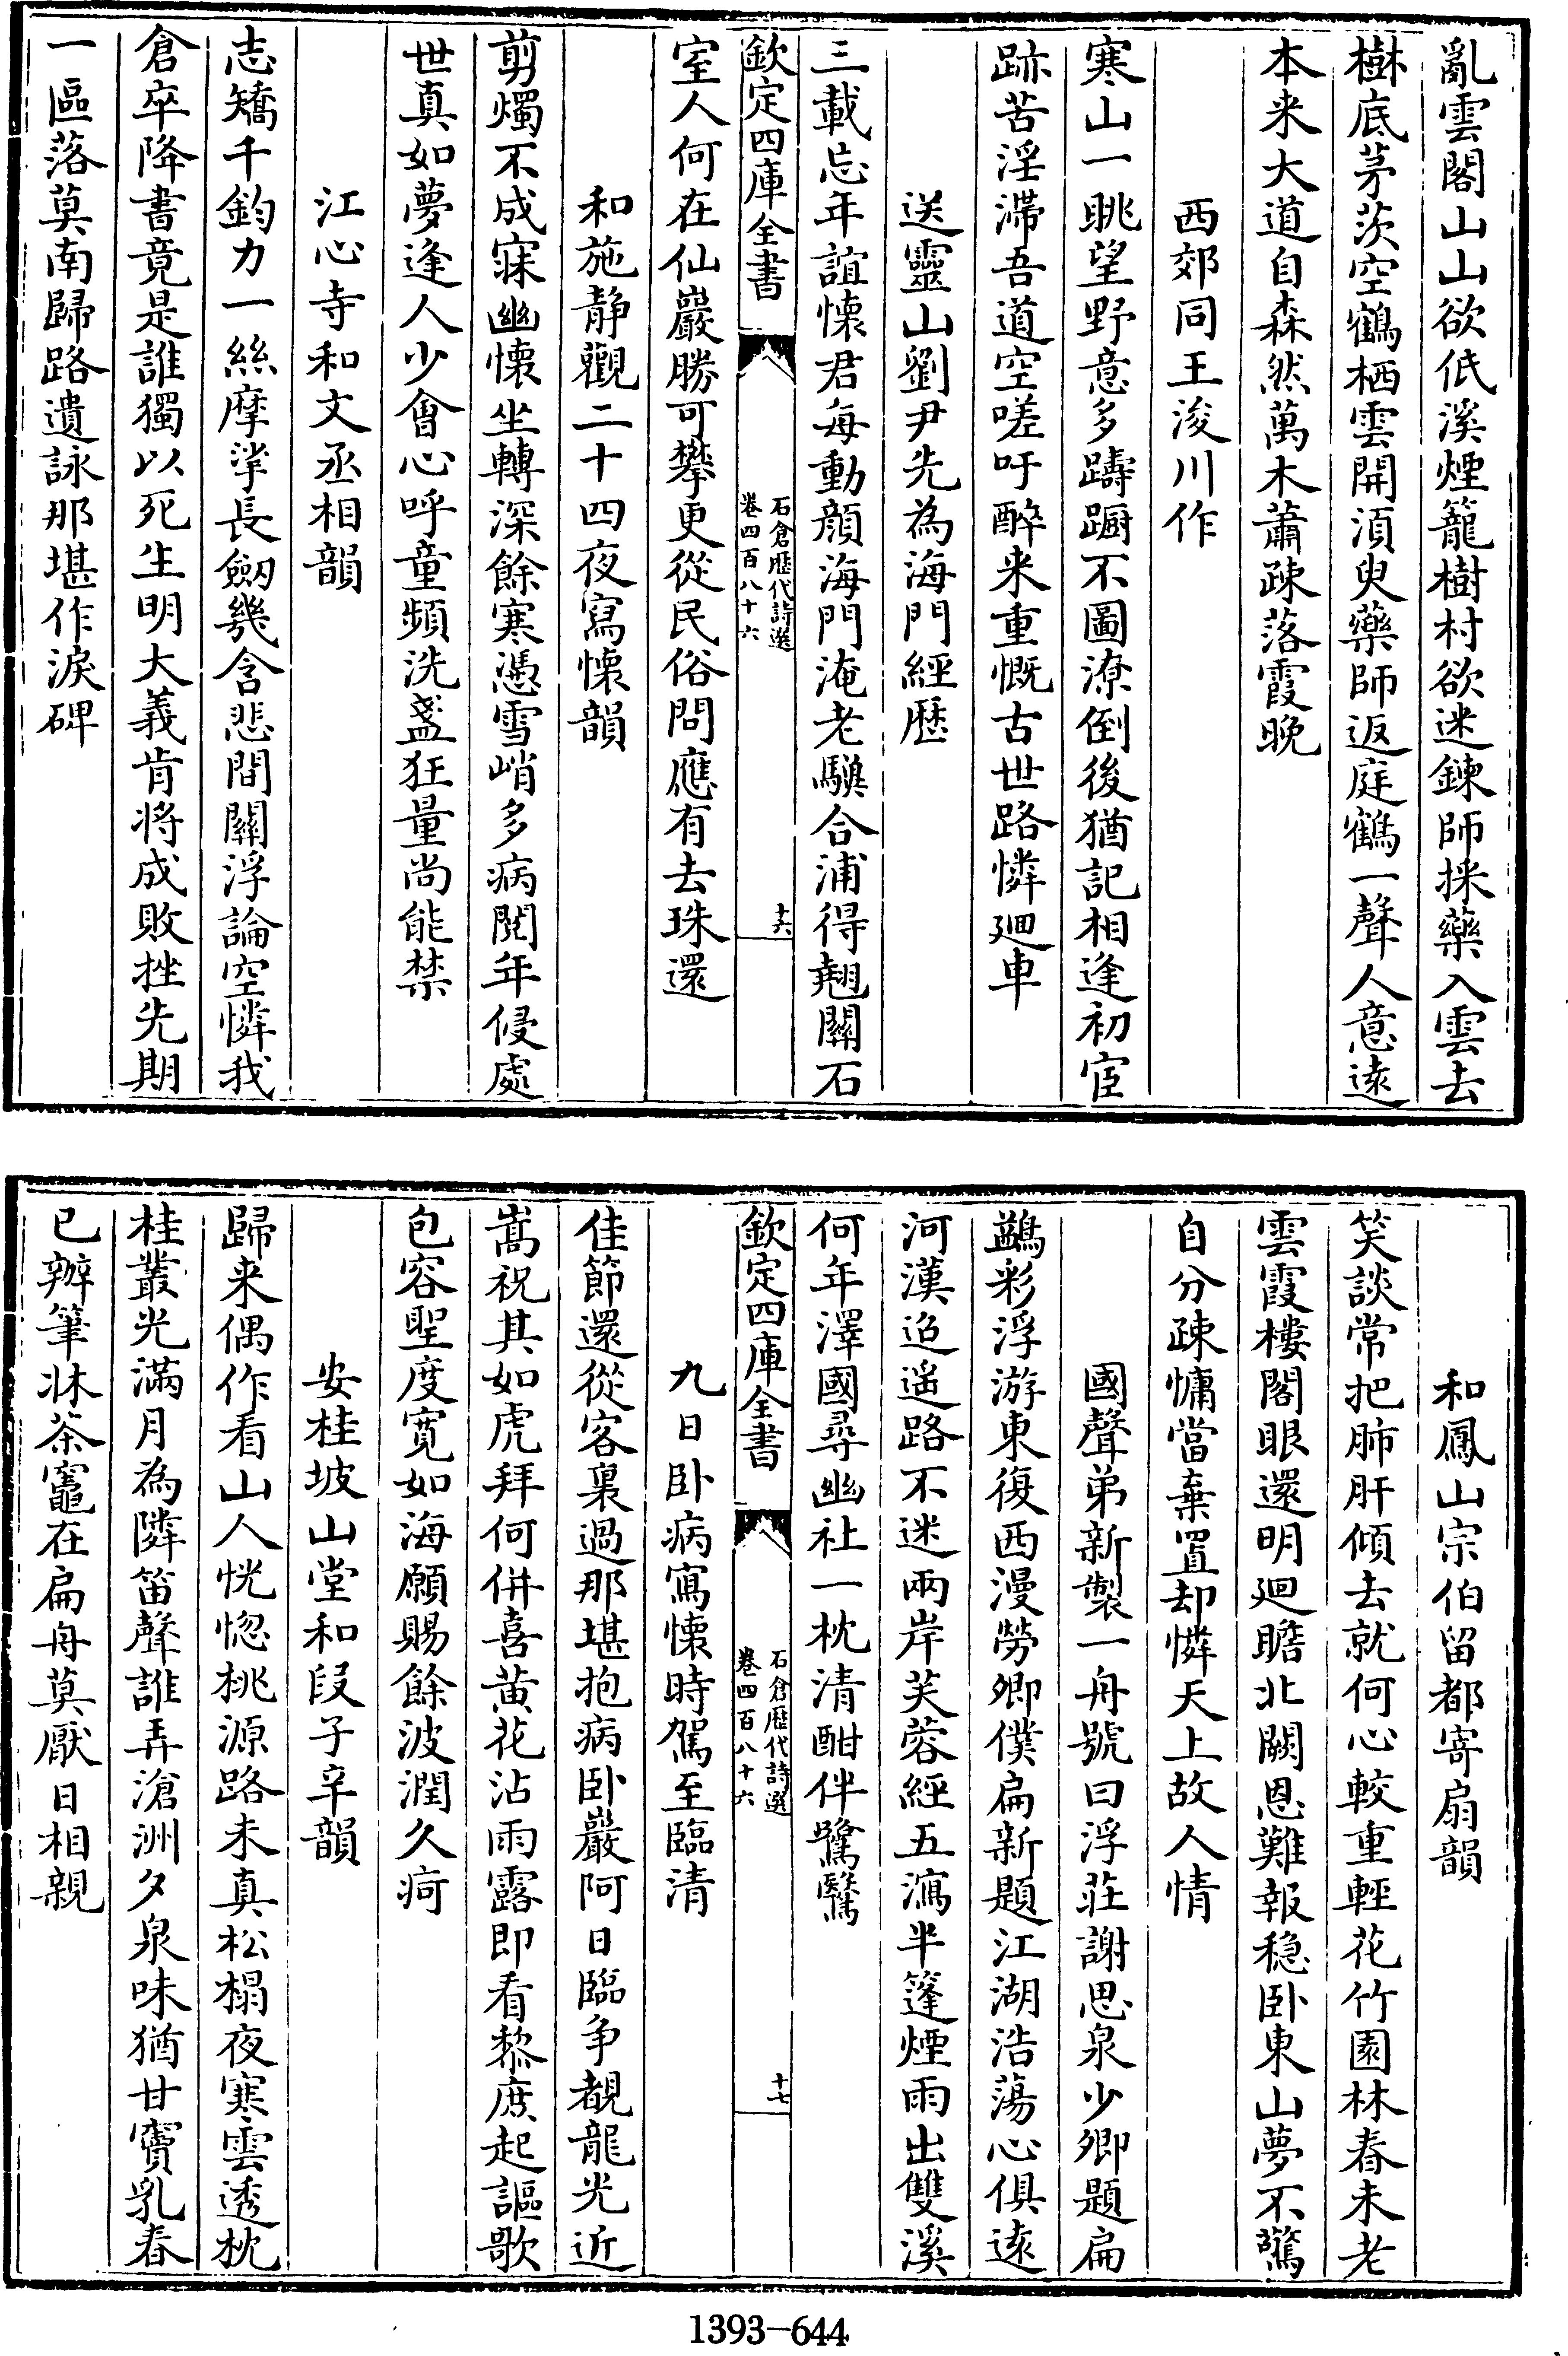 亂雲閣山山欲低溪煙籠樹村欲迷鍊師採藥入雲去
樹底茅茨空鶴栖雲開須臾藥師返庭鶴一聲人意遠
本来大道自森然萬木蕭疎落霞晚
西郊同王浚川作
寒山一眺望野意多躊蹰不圖潦倒後猶記相逢初宦
跡苦淫滯吾道空嗟吁醉来重慨古世路憐廻車
送靈山劉尹先為海門經歷
三載忘年誼懷君每動顔海門淹老驥合浦得翹關石
欽定四庫全書
石倉歷代詩選
卷四百八十六
十六
室人何在仙巖勝可攀更從民俗問應有去珠還
和施静觀二十四夜寫懷韻
剪燭不成寐幽懷坐轉深餘寒憑雪峭多病閱年侵處
世真如夢逢人少會心呼童頻洗盞狂量尚能禁
江心寺和文丞相韻
志矯千鈞力一絲摩挲長劒幾含悲間關浮論空憐我
倉卒降書竟是誰獨以死生明大義肯將成敗挫先期
一區落莫南歸路遺詠那堪作淚碑
和鳳山宗伯留都寄扇韻
笑談常把肺肝傾去就何心較重輕花竹園林春未老
雲霞樓閣眼還明廻瞻北闕恩難報穩卧東山夢不驚
自分疎慵當棄置却憐天上故人情
國聲弟新製一舟號曰浮莊謝思泉少卿題扁
鷁彩浮游東復西漫勞卿僕扁新題江湖浩蕩心俱遠
河漢迢遥路不迷兩岸芙蓉經五瀉半篷煙雨出雙溪
何年澤國尋幽社一枕清酣伴鷺鷖
欽定四庫全書
石倉歷代詩選
卷四百八十六
十七
九日卧病寫懷時駕至臨清
佳節還從客裏過那堪抱病卧巖阿日臨争覩龍光近
嵩祝其如虎拜何併喜黄花沾雨露即看黎庶起謳歌
包容聖度寛如海願賜餘波潤久疴
安桂坡山堂和段子辛韻
歸来偶作看山人恍惚桃源路未真松榻夜寒雲透枕
桂叢光滿月為隣笛聲誰弄滄洲夕泉味猶甘竇乳春
已辦筆牀茶竈在扁舟莫厭日相親
1393-644